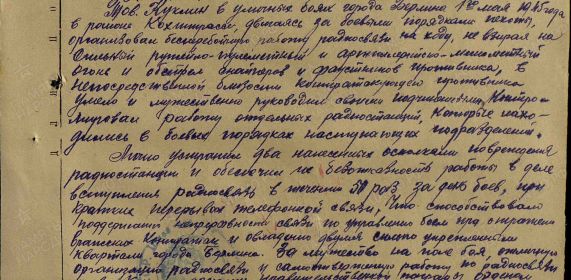 Тов. Куклин в уличных боях города Берлина 1го мая 1945 года
в районе Кохштрассе, двигаясь за боевыми порядками пехоты,
организовал бесперебойную работу радиосвязи на ходу, не взирая на
сильный ружейно-пулеметный и артиллерийско-минометный
огонь и обстрел снайперов и фаустников противника, в
непосредственной близости контратакующего противника
умело и мужественно руководил своими подчиненными, контро-
лировал работу отдельных радиостанций, которые нахо-
дились в боевых порядках наступающих подразделений.
Лично устранил два нанесенных осколками повреждения
радиостанции и обеспечил её безотказность работы в деле
вступления радиосвязь в течении 50 раз за день боев, при
кратких перерывах телефонной связи, что способствовало
поддержанию непрерывности связи по управлению боем при отражении
контратак и овладении двумя сильно укрепленными
кварталами города Берлина. За мужество на поле боя, отличную
организацию радиосвязи и самоотверженную работу по радиосвязи
орденом